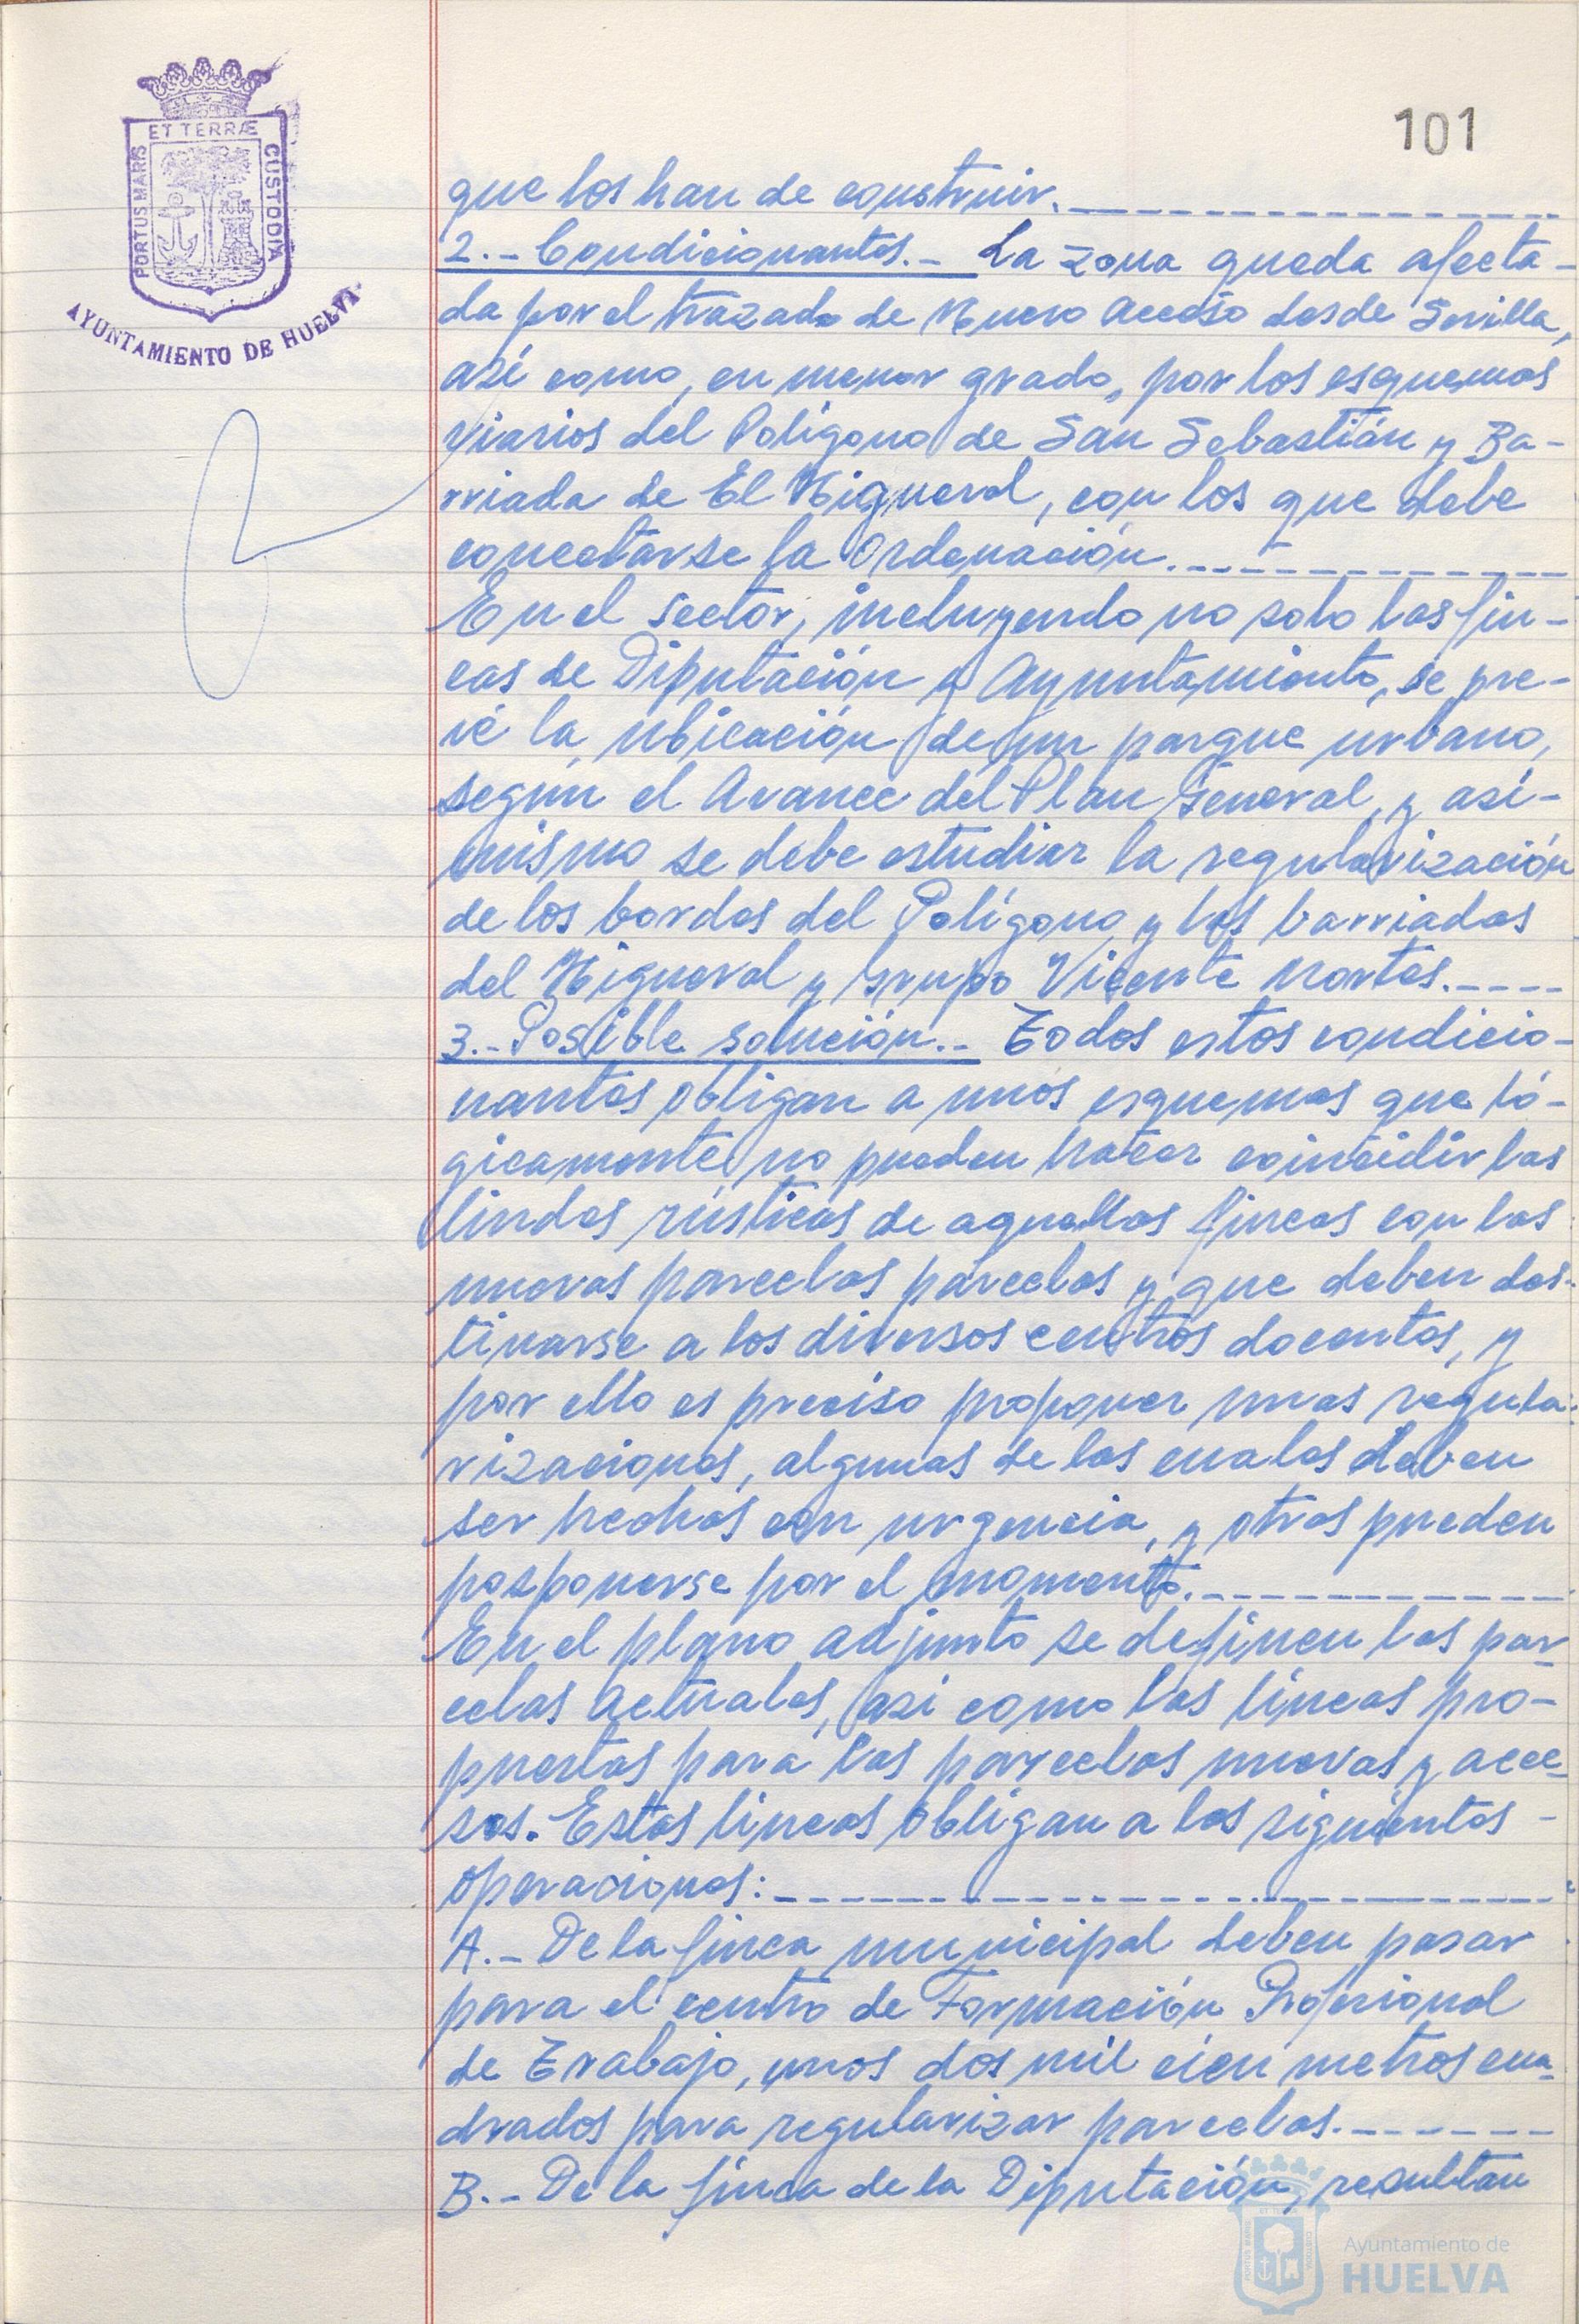 101
ET TERRÆ
PORTUS MARIS
CUSTODIA
AYUNTAMIENTO DE HUELVA
que los han de construir.
2.- Condicionantes.- La zona queda afecta-
da por el trazado de Nuevo Acceso desde Sevilla,
así como, en menor grado, por los esquemas
viarios del Polígono de San Sebastián y Ba-
rriada de El Higueral, con los que debe
conectarse la Ordenación.
En el sector, incluyendo no solo las fin-
cas de Diputación y Ayuntamiento, se pre-
vé la ubicación de un parque urbano,
según el Avance del Plan General, y asi-
mismo se debe estudiar la regularización
de los bordes del Polígono y las barriadas
del Higueral y Grupo Vicente Mortes.
3.- Posible solución.- Todos estos condicio-
nantes obligan a unos esquemas que ló-
gicamente no pueden hacer coincidir las
lindes rústicas de aquellas fincas con las
nuevas parcelas parcelas y que deben des-
tinarse a los diversos centros docentes, y
por ello es preciso proponer unas regula-
rizaciones, algunas de las cuales deben
ser hechas con urgencia, y otras pueden
posponerse por el momento.
En el plano adjunto se definen las par
celas actuales, asi como las líneas pro-
puestas para las parcelas nuevas y acce-
sos. Estas líneas obligan a las siguientes -
operaciones:
A.- De la finca municipal deben pasar
para el centro de Formación Profesional
de Trabajo, unos dos mil cien metros cua-
drados para regularizar parcelas.
B.- De la finca de la Diputación, resultan
Ayuntamiento de
HUELVA